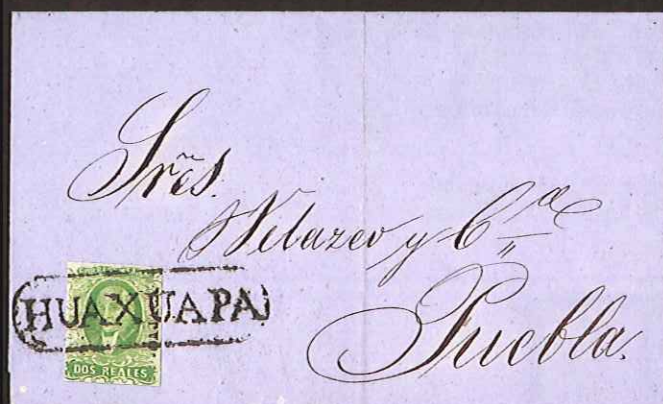 Sres.
Velazco y Cª
Puebla.
HUAXUAPA
DOS REALES